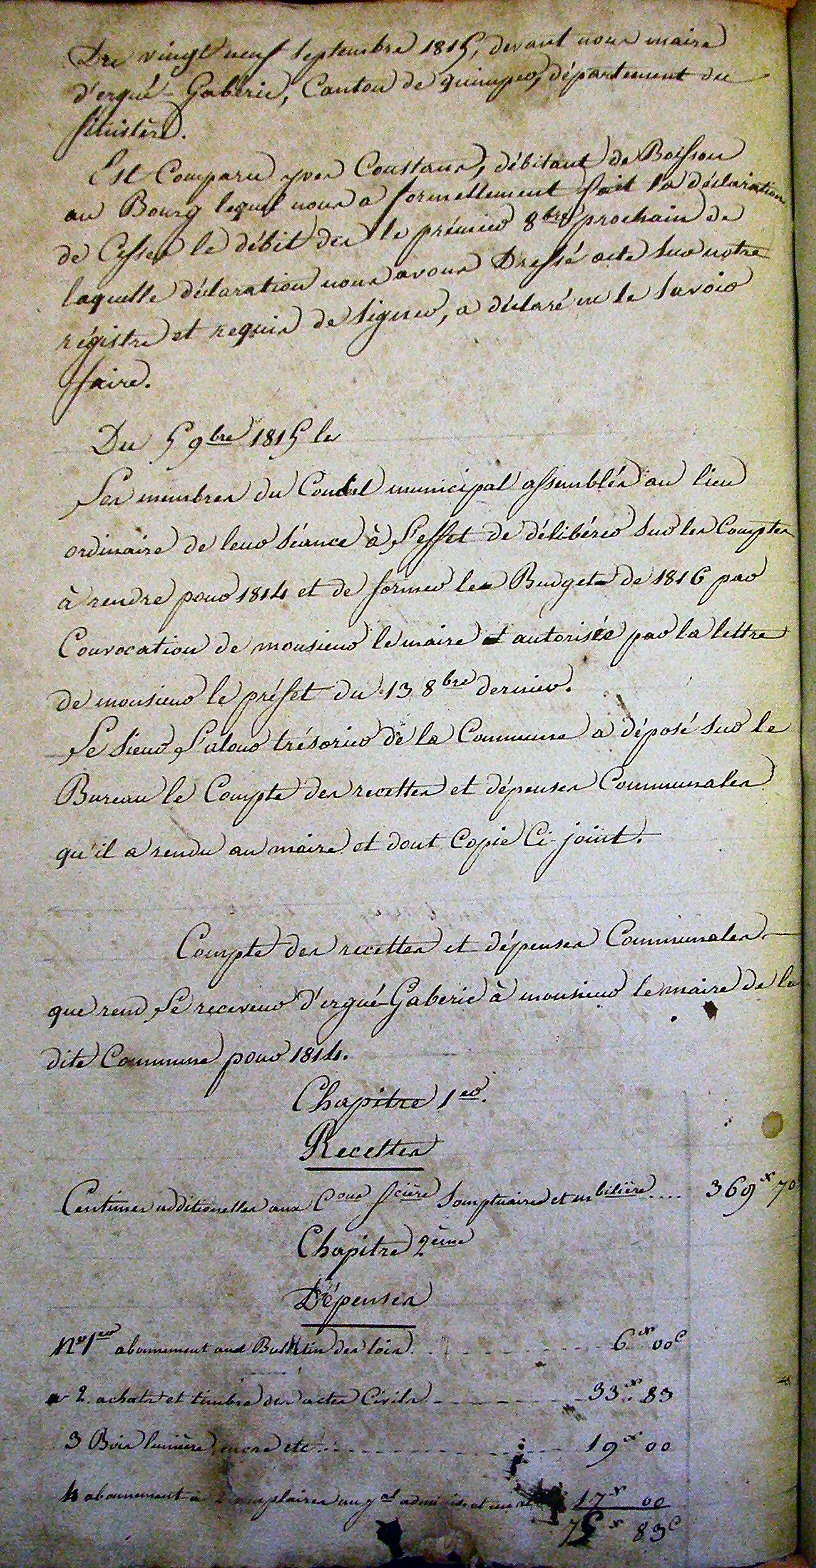 Du vingt neuf septembre 1815, devant nous maire
d'ergué-Gaberic, Canton de quimper, département du
finistère.
Est Comparu yves Coustans, débitant de Boisson
au Bourg lequel nous a formellement fait la déclaration
de Cesser le débit des le prémier 8bre prochain de
laquelle déclaration nous avons Dressé acte sur notre
régistre et requis de signer, a déclaré ne le savoir
faire.
Du 5 9bre 1815 les
Les membres du Conseil municipal assemblés au lieu
ordinaire de leur séance à L'effet de délibérer sur les Comptes
à rendre pour 1814 et de former le Budget de 1816 par
Convocation de monsieur le maire et autorisée par la lettre
de monsieur le préfet du 13 8bre dernier.
Le sieur Salou trésorier de la Commune a déposé sur le
Bureau le Compte des recettes et dépenses Communales
qu'il a rendu au maire et dont Copie Ci-joint.
Compte des recettes et dépenses Communales
que rend Le receveur d'ergué-Gaberic à monsieur le maire de la
dite Commune pour 1814.
Chapitre 1er.
Recettes
Centimes additionelles aux Cons fcière somptuaire et mbilière.... 369 x 70c
Chapitre 2ème
Dépenses
no 1er abonnement aux Bulletin des lois 6 x 00c
2 achats et timbre des actes Civils 33 x 83
3 Bois lumière, encre etc 19 x 00
4 abonnement à 2 exemplaires au jal 17 x 00
75 x 83c